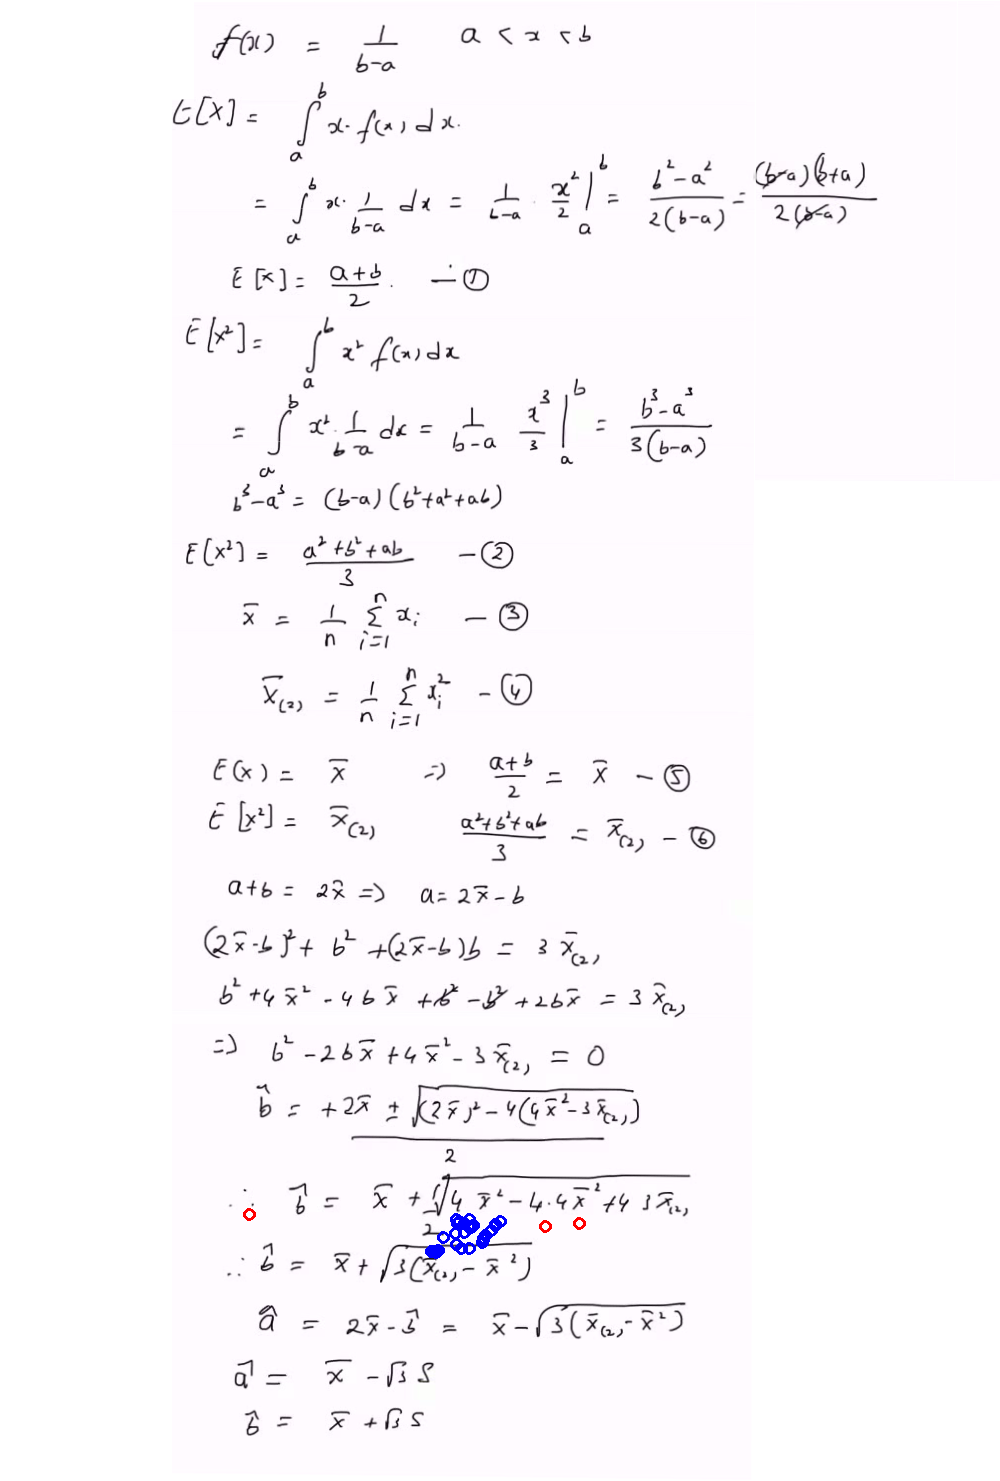 f(x) = 1/(b-a)   a < x < b
E[X] = ∫_a^b x. f(x) dx.
= ∫_a^b x. 1/(b-a) dx = 1/(b-a) . x²/2 |_a^b = (b²-a²)/(2(b-a)) = (b-a)(b+a)/(2(b-a))
E[x] = (a+b)/2. — ①
E[x²] = ∫_a^b x² f(x) dx
= ∫_a^b x². 1/(b-a) dx = 1/(b-a) x³/3 |_a^b = (b³-a³)/(3(b-a))
b³-a³ = (b-a)(b²+a²+ab)
E[x²] = (a²+b²+ab)/3 — ②
x̄ = 1/n Σ_{i=1}^n x_i — ③
x̄_(2) = 1/n Σ_{i=1}^n x_i² — ④
E(x) = x̄ => (a+b)/2 = x̄ — ⑤
E[x²] = x̄_(2)   (a²+b²+ab)/3 = x̄_(2) — ⑥
a+b = 2x̄ => a = 2x̄-b
(2x̄-b)² + b² +(2x̄-b)b = 3 x̄_(2)
b² +4x̄² - 4b x̄ +b² -b² +2bx̄ = 3 x̄_(2)
=> b² -2bx̄ +4x̄² - 3x̄_(2) = 0
b̂ = (+2x̄ ± √((2x̄)² - 4(4x̄²-3x̄_(2))))/2
∴ b̂ = x̄ + 1/2 √(4 x̄² - 4.4x̄² +4 3x̄_(2))
∴ b̂ = x̄ + √(3(x̄_(2) - x̄²))
â = 2x̄ - b̂ = x̄ - √(3(x̄_(2) - x̄²))
â = x̄ - √3 S
b̂ = x̄ + √3 S